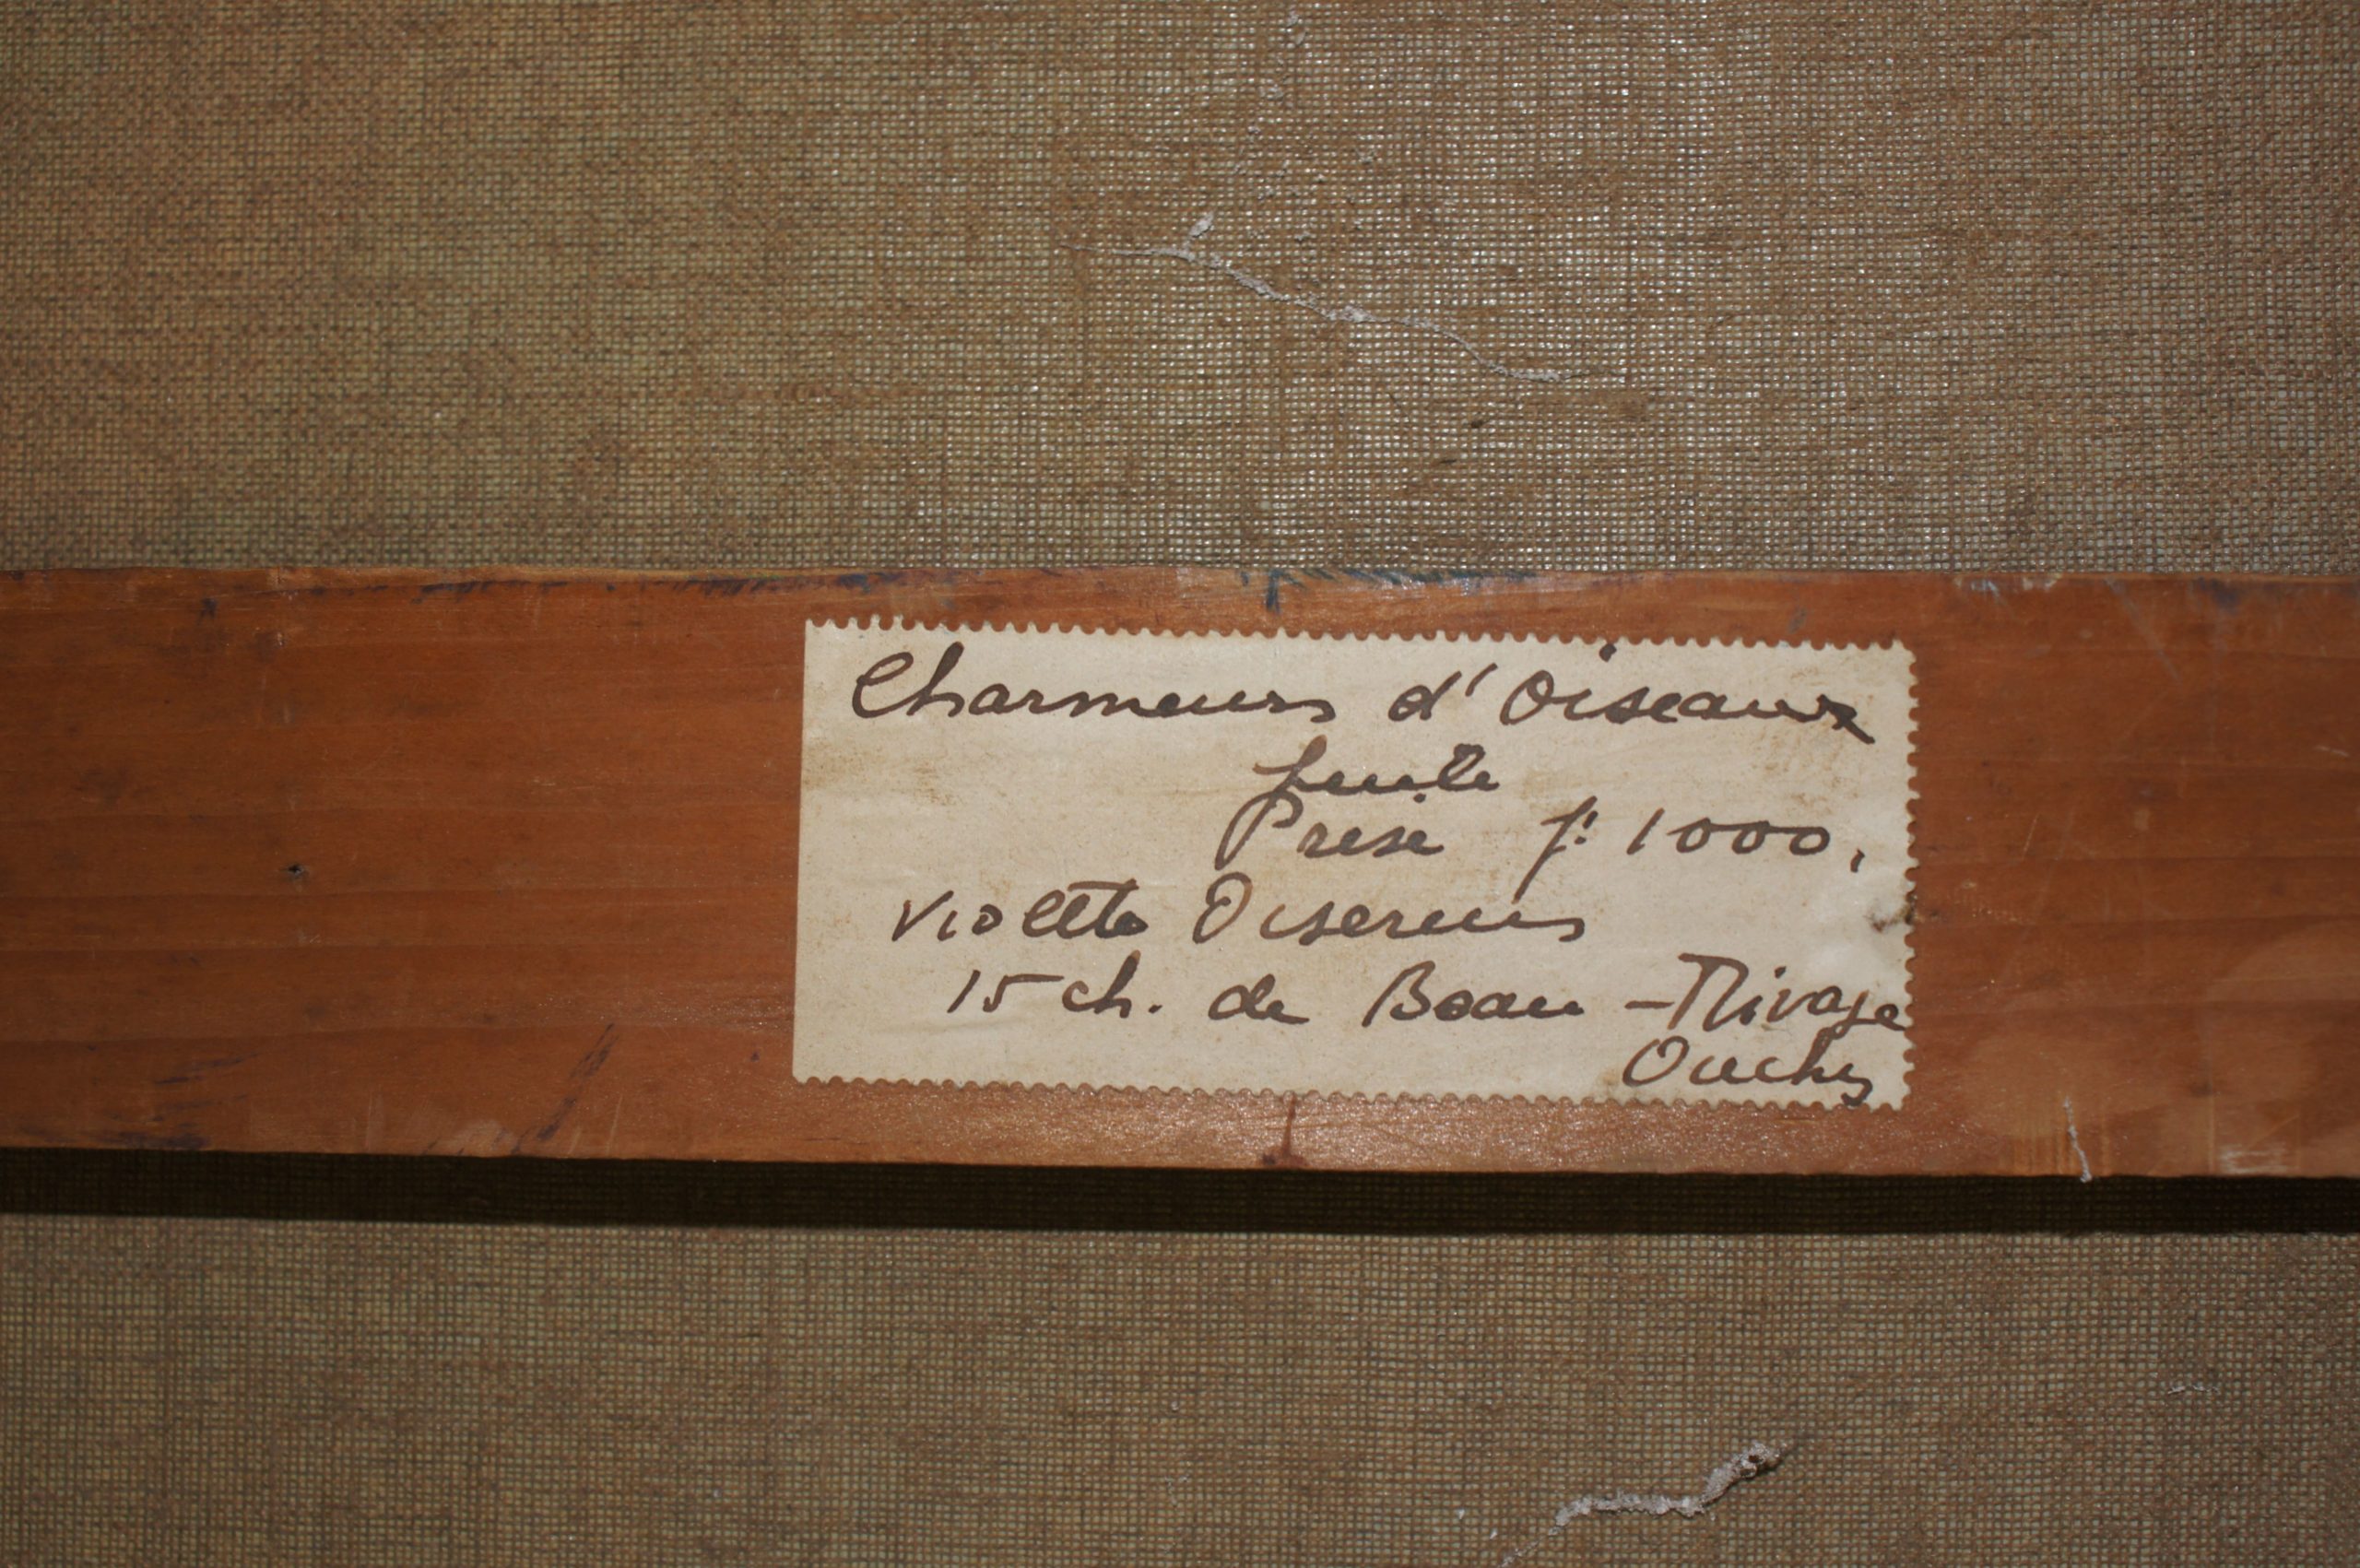 Charmeurs d'Oiseaux
huile
Prix f: 1000,
Violette Diserens
15 ch. de Beau-Rivage
Ouchy